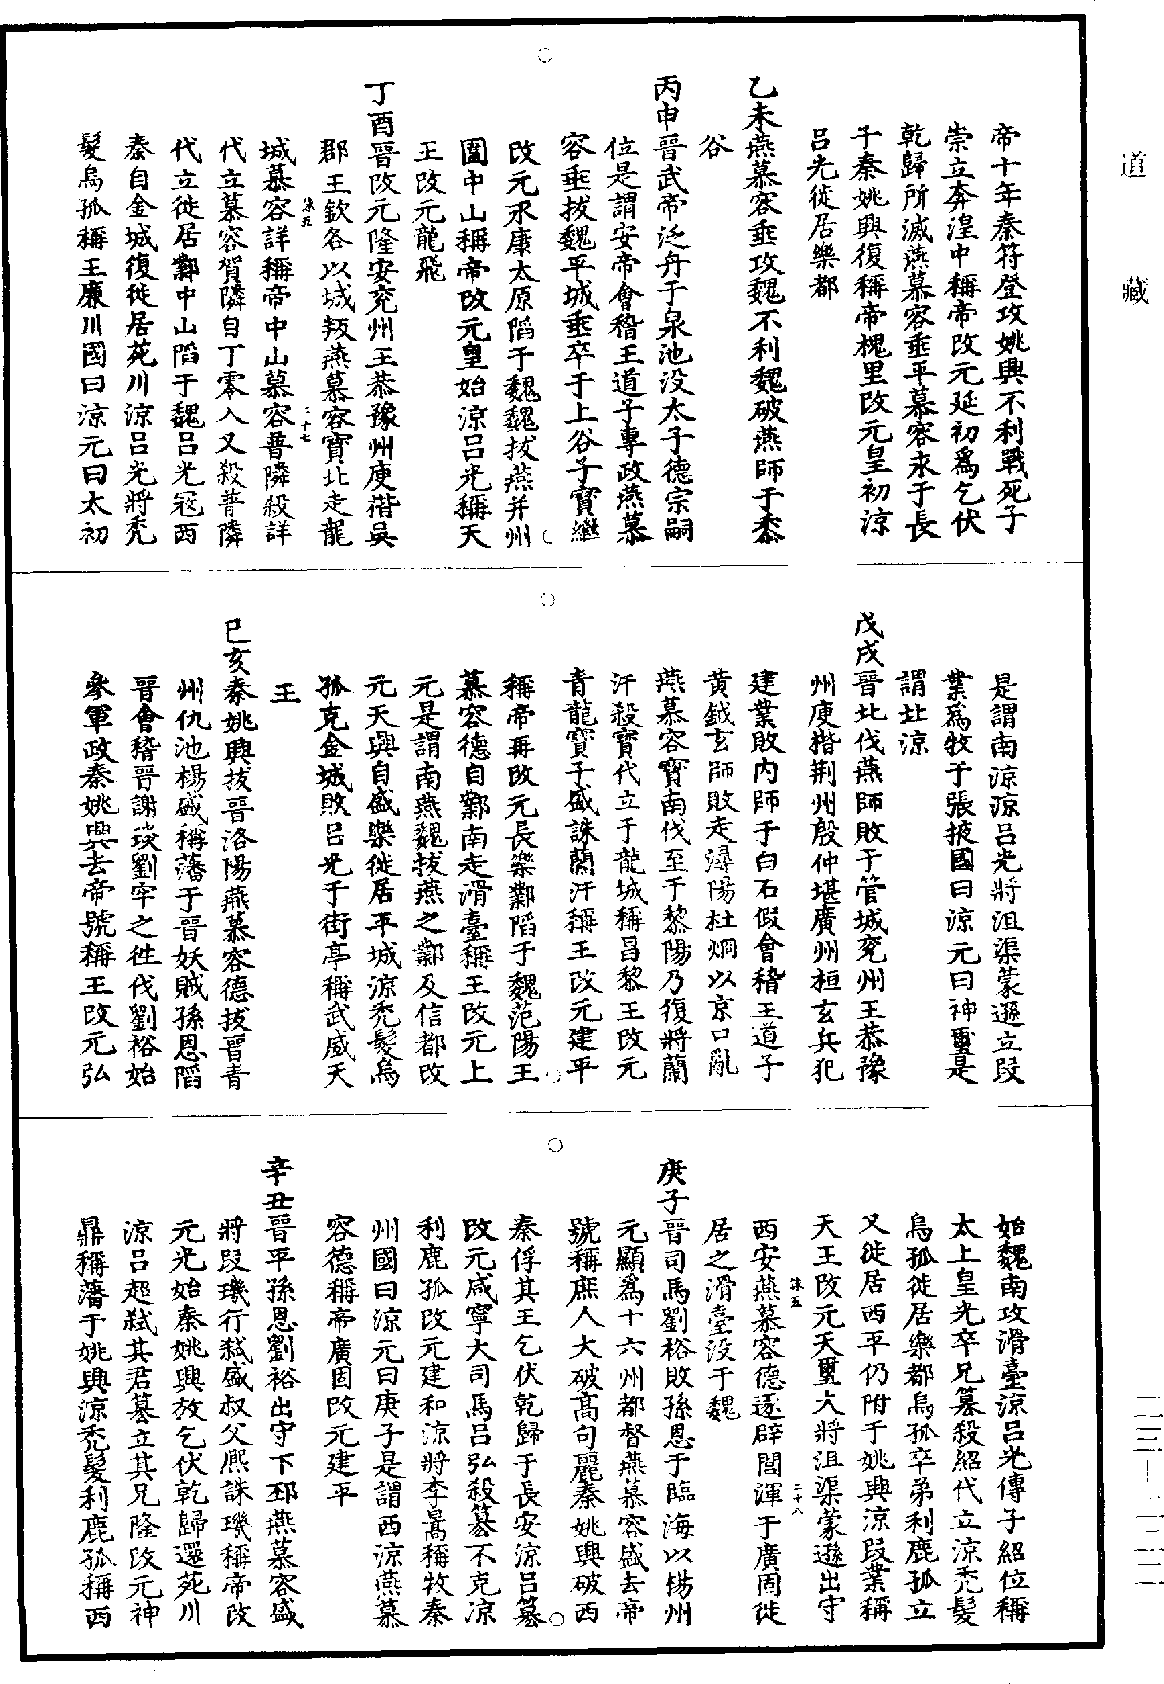 道藏
帝十年秦苻登攻姚興不利戰死子
崇立奔湟中稱帝改元延初爲乞伏
乾歸所滅燕慕容垂平慕容永于長
子秦姚興復稱帝槐里改元皇初涼
呂光徙居樂都
乙未燕慕容垂攻魏不利魏破燕師于黍
谷
丙申晉武帝泛舟于泉池没太子德宗嗣
位是謂安帝會稽王道子專政燕慕
容垂拔魏平城垂卒于上谷子寶繼
改元永康太原䧟于魏魏拔燕并州
圍中山稱帝改元皇始涼呂光稱天
王改元龍飛
丁酉晉改元隆安兖州王恭豫州庾揩吳
郡王欽各以城叛燕慕容寶北走龍
洙五
三十七
城慕容詳稱帝中山慕容普隣殺詳
代立慕容賀隣自丁零入又殺普隣
代立徙居鄴中山䧟于魏呂光冦西
秦自金城復徙居苑川涼呂光將禿
髮烏孤稱王廉川國曰涼元曰太初
是謂南涼涼呂光將沮渠蒙遜立段
業爲牧于張掖國曰涼元曰神璽是
謂北涼
戊戌晉北伐燕師敗于管城兖州王恭豫
州庾揩荆州殷仲堪廣州桓玄兵犯
建業敗内師于白石假會稽王道子
黃鉞玄師敗走潯陽杜烱以京口亂
燕慕容寶南伐至于黎陽乃復將蘭
汗殺寶代立于龍城稱昌黎王改元
青龍寶子盛誅蘭汗稱王改元建平
稱帝再改元長樂鄴䧟于魏范陽王
慕容德自鄴南走滑臺稱王改元上
元是謂南燕魏拔燕之鄴及信都改
元天興自盛樂徙居平城涼禿髮烏
孤克金城敗呂光于街亭稱武威天
王
己亥秦姚興拔晉洛陽燕慕容德拔晉青
州仇池楊盛稱藩于晉妖賊孫恩䧟
晉會稽晉謝琰劉牢之往伐劉裕始
參軍政秦姚興去帝號稱王改元弘
始魏南攻滑臺涼呂光傳子紹位稱
太上皇光卒兄纂殺紹代立涼禿髮
烏孤徙居樂都烏孤卒弟利鹿孤立
又徙居西平仍附于姚興涼段業稱
天王改元天璽大將沮渠蒙遜出守
洙五
三十八
西安燕慕容德逐辟閭渾于廣固徙
居之滑臺没于魏
庚子晉司馬劉裕敗孫恩于臨海以楊州
元顯爲十六州都督燕慕容盛去帝
號稱庶人大破高句麗秦姚興破西
秦俘其王乞伏乾歸于長安涼呂纂
改元咸寧大司馬呂弘殺纂不克涼
利鹿孤改元建和涼將李暠稱牧秦
州國曰涼元曰庚子是謂西涼燕慕
容德稱帝廣固改元建平
辛丑晉平孫恩劉裕出守下邳燕慕容盛
將段璣行弑盛叔父熈誅璣稱帝改
元光始秦姚興放乞伏乾歸還苑川
涼呂超弑其君纂立其兄隆改元神
鼎稱藩于姚興涼禿髮利鹿孤稱西